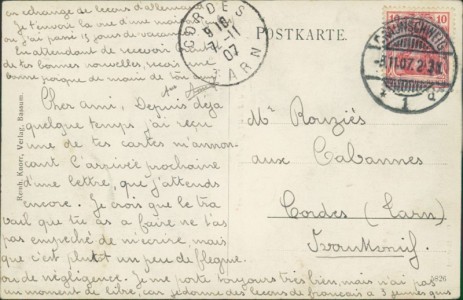 en échange de leçons d'allemand.
Je t'envoie la vue d'une maison
où j'ai passé 15 jours de vacances.
En attendant de recevoir bientôt
de tes bonnes nouvelles, reçois une
bonne poigne de main de ton ami
CORDES
9 10
7-11
07
TARN
POSTKARTE.
BRAUNSCHWEIG
-5.11.07. 2-3N
* 1 d
10 10
Cher ami, Depuis déjà
quelque temps j'ai reçu
une de tes cartes m'annon-
cant l'arrivée prochaine
d'une lettre, que j'attends
encore. Je crois que le tra
vail que tu as à faire ne t'as
pas empêché de m'écrire, mais
que c'est plutôt un peu de flegme
ou de négligence. Je me porte toujours très bien, mais n'ai pas
un moment de libre, car je donne des leçons de français à 3 jeunes gens
Mr Rouziés
aux Cabannes
Cordes (Tarn)
Frankreich.
Verlag, Bassum.
2826